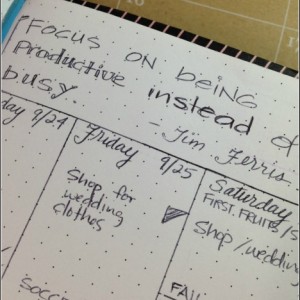 FOCUS ON BEING
productive instead of
busy.
- Tim Ferris
day 9/24
Friday 9/25
Saturday
Shop for
wedding
clothes
FIRST FRUITS
Shop / wedding
SOCCE
FALL